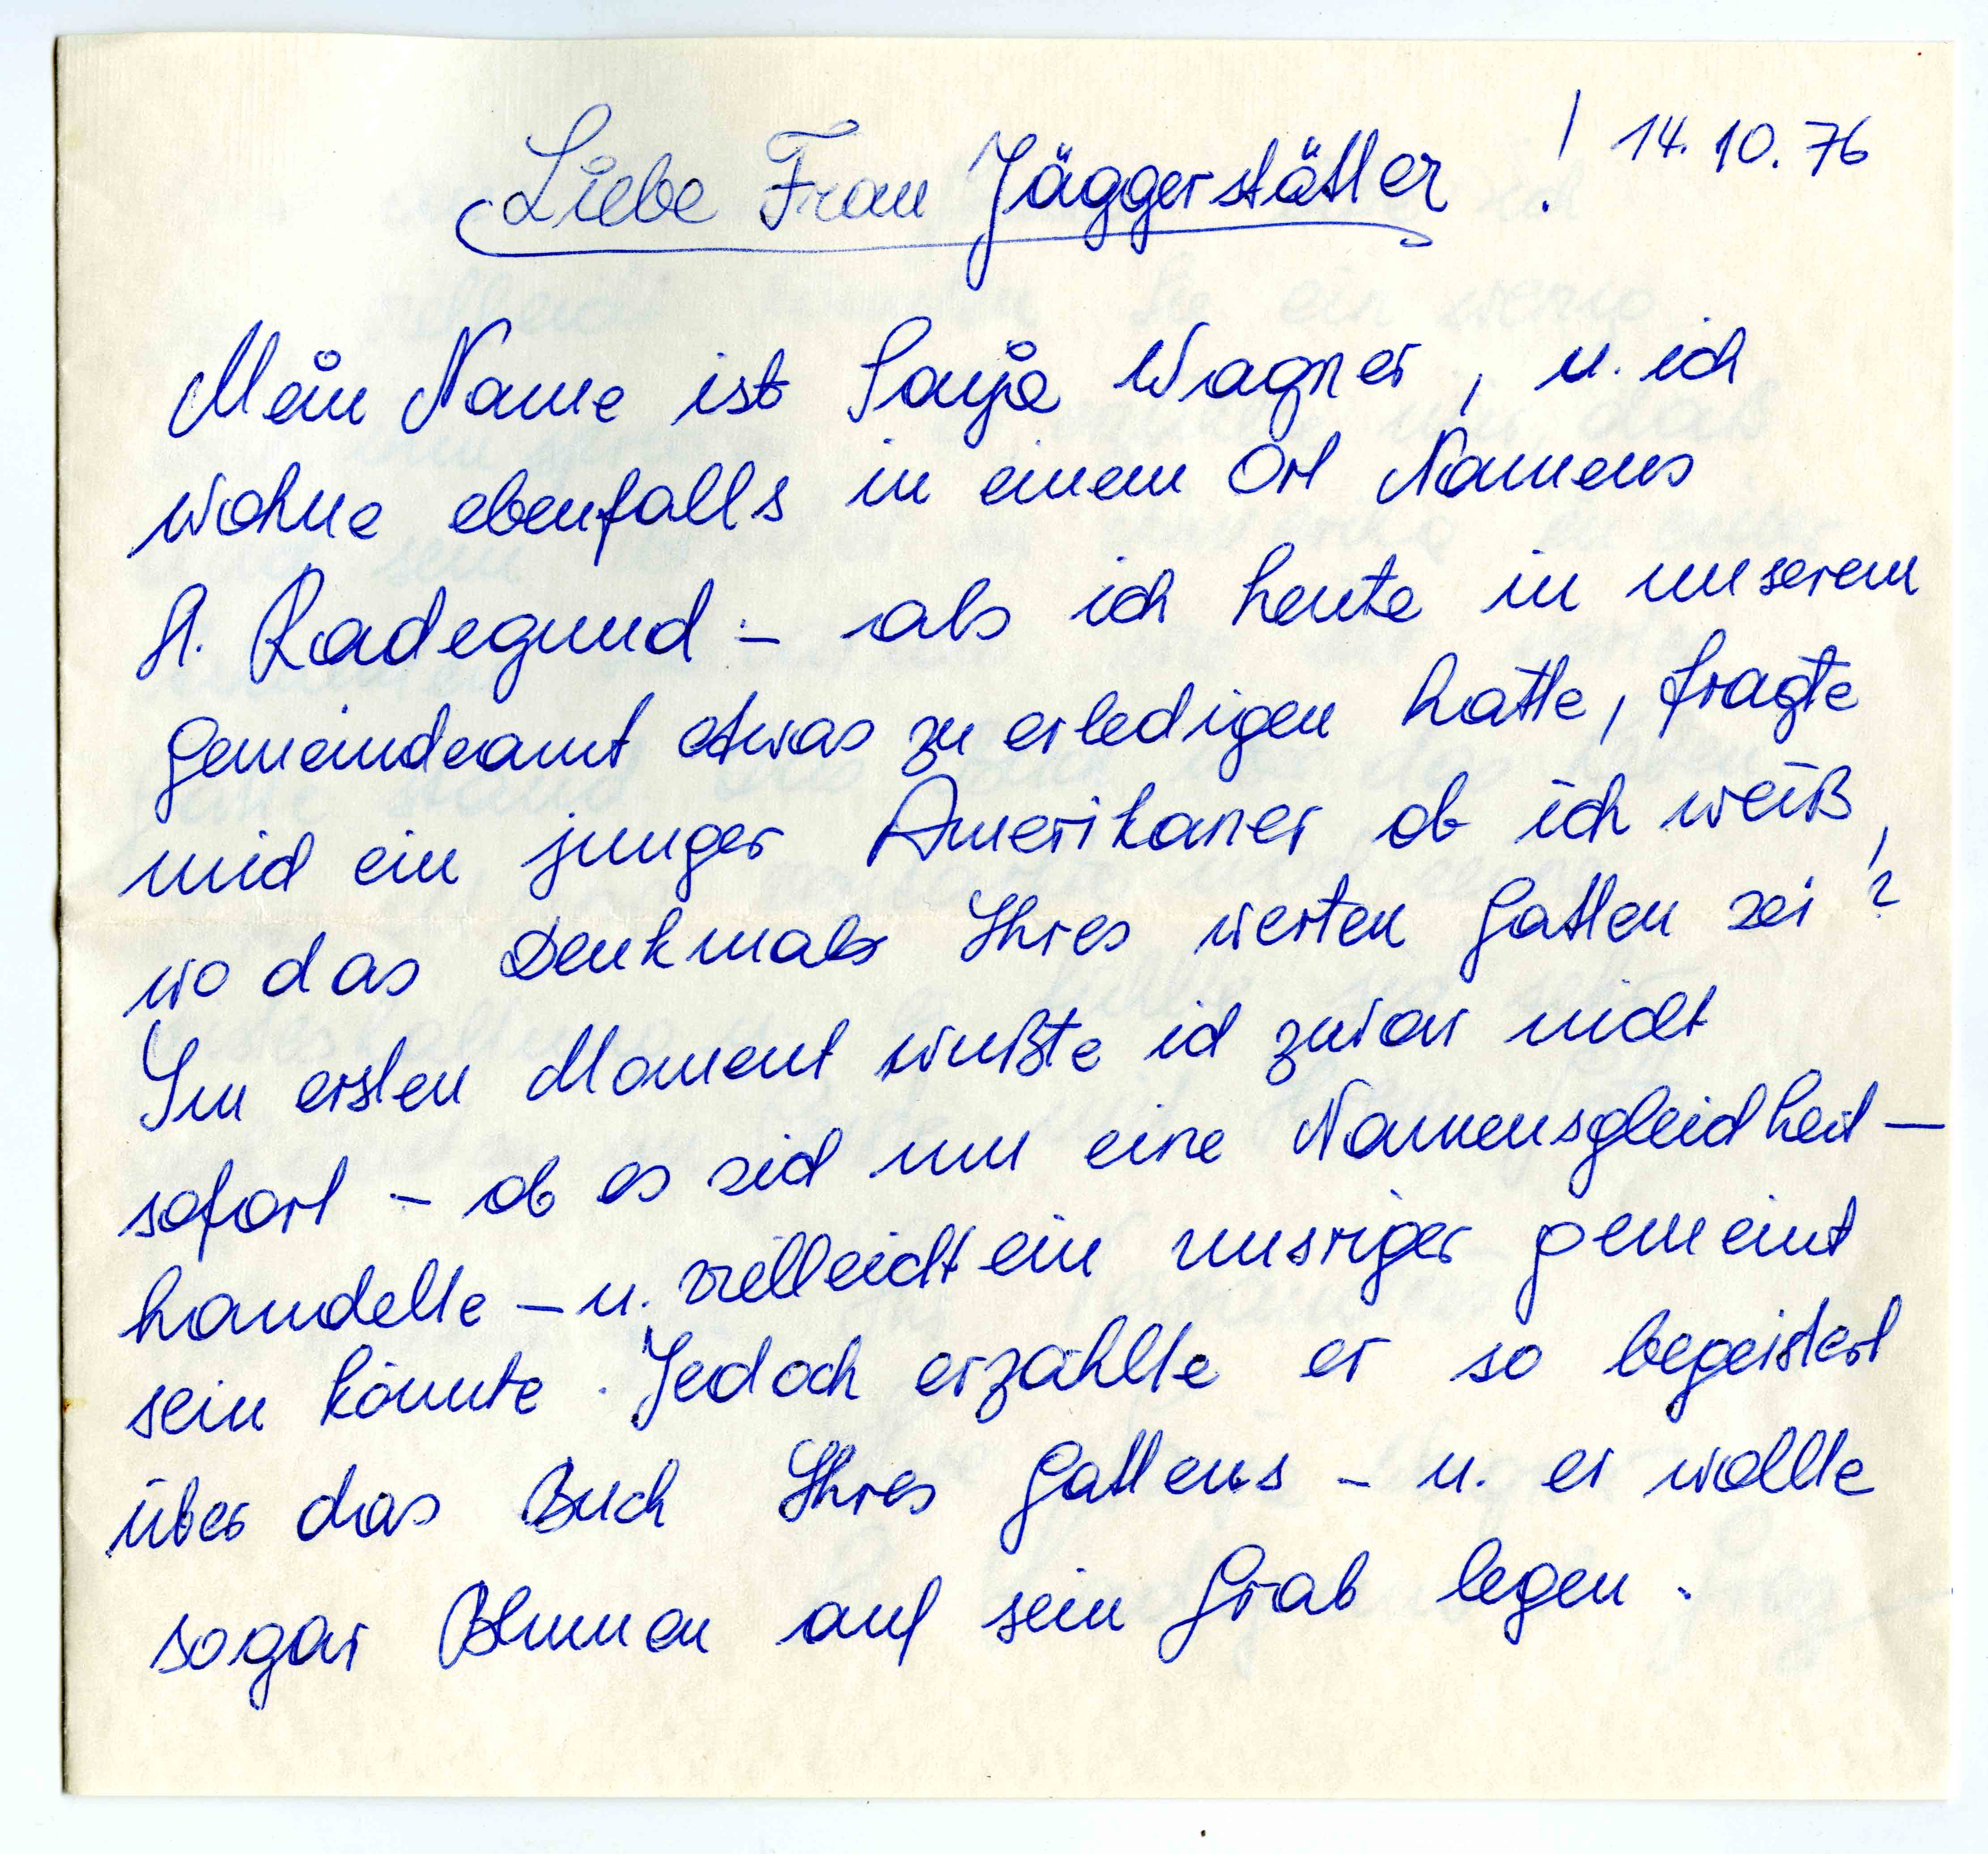 Liebe Frau Jäggerstätter ! 14.10.76
Mein Name ist Sonja Wagner, u. ich
wohne ebenfalls in einem Ort Namens
St. Radegund – als ich heute in unserem
Gemeindeamt etwas zu erledigen hatte, fragte
mich ein junger Amerikaner ob ich weiß,
wo das Denkmals Ihres werten Gatten sei ?
Im ersten Moment wußte ich zwar nicht
sofort – ob es sich um eine Namensgleichheit –
handelte – u. vielleicht ein unsriger gemeint
sein könnte. Jedoch erzählte er so begeistert
über das Buch Ihres Gattens – u. er wollte
sogar Blumen auf sein Grab legen.